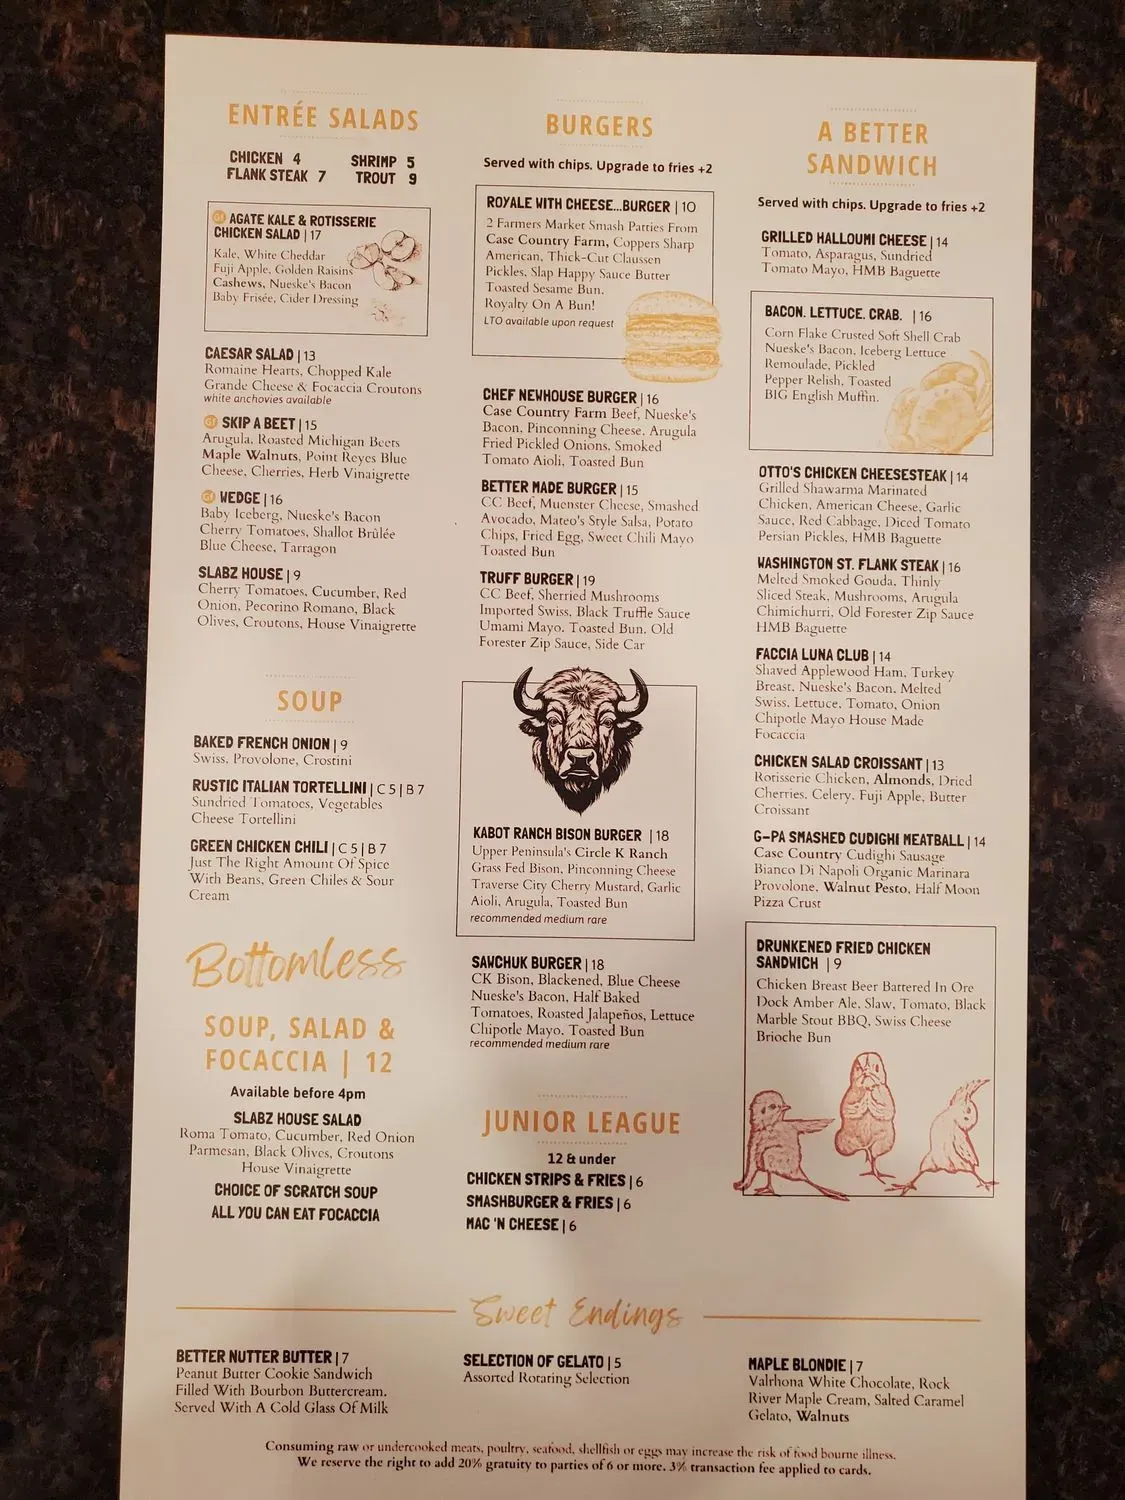 ENTRÉE SALADS
CHICKEN 4 SHRIMP 5
FLANK STEAK 7 TROUT 9
GF AGATE KALE & ROTISSERIE
CHICKEN SALAD | 17
Kale, White Cheddar
Fuji Apple, Golden Raisins
Cashews, Nueske's Bacon
Baby Frisée, Cider Dressing
CAESAR SALAD | 13
Romaine Hearts, Chopped Kale
Grande Cheese & Focaccia Croutons
white anchovies available
GF SKIP A BEET | 15
Arugula, Roasted Michigan Beets
Maple Walnuts, Point Reyes Blue
Cheese, Cherries, Herb Vinaigrette
GF WEDGE | 16
Baby Iceberg, Nueske's Bacon
Cherry Tomatoes, Shallot Brûlée
Blue Cheese, Tarragon
SLABZ HOUSE | 9
Cherry Tomatoes, Cucumber, Red
Onion, Pecorino Romano, Black
Olives, Croutons, House Vinaigrette
SOUP
BAKED FRENCH ONION | 9
Swiss, Provolone, Crostini
RUSTIC ITALIAN TORTELLINI | C 5 | B 7
Sundried Tomatoes, Vegetables
Cheese Tortellini
GREEN CHICKEN CHILI | C 5 | B 7
Just The Right Amount Of Spice
With Beans, Green Chiles & Sour
Cream
Bottomless
SOUP, SALAD &
FOCACCIA | 12
Available before 4pm
SLABZ HOUSE SALAD
Roma Tomato, Cucumber, Red Onion
Parmesan, Black Olives, Croutons
House Vinaigrette
CHOICE OF SCRATCH SOUP
ALL YOU CAN EAT FOCACCIA
BURGERS
Served with chips. Upgrade to fries +2
ROYALE WITH CHEESE...BURGER | 10
2 Farmers Market Smash Patties From
Case Country Farm, Coppers Sharp
American, Thick-Cut Claussen
Pickles, Slap Happy Sauce Butter
Toasted Sesame Bun.
Royalty On A Bun!
LTO available upon request
CHEF NEWHOUSE BURGER | 16
Case Country Farm Beef, Nueske's
Bacon, Pinconning Cheese, Arugula
Fried Pickled Onions, Smoked
Tomato Aioli, Toasted Bun
BETTER MADE BURGER | 15
CC Beef, Muenster Cheese, Smashed
Avocado, Mateo's Style Salsa, Potato
Chips, Fried Egg, Sweet Chili Mayo
Toasted Bun
TRUFF BURGER | 19
CC Beef, Sherried Mushrooms
Imported Swiss, Black Truffle Sauce
Umami Mayo, Toasted Bun, Old
Forester Zip Sauce, Side Car
KABOT RANCH BISON BURGER | 18
Upper Peninsula's Circle K Ranch
Grass Fed Bison, Pinconning Cheese
Traverse City Cherry Mustard, Garlic
Aioli, Arugula, Toasted Bun
recommended medium rare
SAWCHUK BURGER | 18
CK Bison, Blackened, Blue Cheese
Nueske's Bacon, Half Baked
Tomatoes, Roasted Jalapeños, Lettuce
Chipotle Mayo, Toasted Bun
recommended medium rare
JUNIOR LEAGUE
12 & under
CHICKEN STRIPS & FRIES | 6
SMASHBURGER & FRIES | 6
MAC 'N CHEESE | 6
A BETTER
SANDWICH
Served with chips. Upgrade to fries +2
GRILLED HALLOUMI CHEESE | 14
Tomato, Asparagus, Sundried
Tomato Mayo, HMB Baguette
BACON. LETTUCE. CRAB. | 16
Corn Flake Crusted Soft Shell Crab
Nueske's Bacon, Iceberg Lettuce
Remoulade, Pickled
Pepper Relish, Toasted
BIG English Muffin.
OTTO'S CHICKEN CHEESESTEAK | 14
Grilled Shawarma Marinated
Chicken, American Cheese, Garlic
Sauce, Red Cabbage, Diced Tomato
Persian Pickles, HMB Baguette
WASHINGTON ST. FLANK STEAK | 16
Melted Smoked Gouda, Thinly
Sliced Steak, Mushrooms, Arugula
Chimichurri, Old Forester Zip Sauce
HMB Baguette
FACCIA LUNA CLUB | 14
Shaved Applewood Ham, Turkey
Breast, Nueske's Bacon, Melted
Swiss, Lettuce, Tomato, Onion
Chipotle Mayo House Made
Focaccia
CHICKEN SALAD CROISSANT | 13
Rotisserie Chicken, Almonds, Dried
Cherries, Celery, Fuji Apple, Butter
Croissant
G-PA SMASHED CUDIGHI MEATBALL | 14
Case Country Cudighi Sausage
Bianco Di Napoli Organic Marinara
Provolone, Walnut Pesto, Half Moon
Pizza Crust
DRUNKENED FRIED CHICKEN
SANDWICH | 9
Chicken Breast Beer Battered In Ore
Dock Amber Ale, Slaw, Tomato, Black
Marble Stout BBQ, Swiss Cheese
Brioche Bun
Sweet Endings
BETTER NUTTER BUTTER | 7
Peanut Butter Cookie Sandwich
Filled With Bourbon Buttercream.
Served With A Cold Glass Of Milk
SELECTION OF GELATO | 5
Assorted Rotating Selection
MAPLE BLONDIE | 7
Valrhona White Chocolate, Rock
River Maple Cream, Salted Caramel
Gelato, Walnuts
Consuming raw or undercooked meats, poultry, seafood, shellfish or eggs may increase the risk of food bourne illness.
We reserve the right to add 20% gratuity to parties of 6 or more. 3% transaction fee applied to cards.